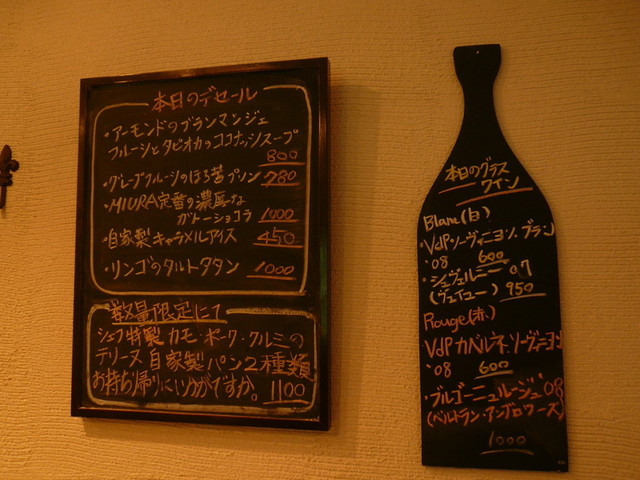 本日のデセール
・アーモンドのブランマンジェ
フルーツとタピオカのココナッツスープ
800
・グレープフルーツのほろ苦プリン 780
・MIURA定番の濃厚な
ガトーショコラ 1000
・自家製キャラメルアイス 450
・リンゴのタルトタタン 1000
数量限定にて
シェフ特製 カモ・ポーク・クルミの
テリーヌ 自家製パン2種類
お持ち帰りにいかがですか。1100
本日のグラス
ワイン
Blanc(白)
・VdPソーヴィニヨン.ブラン
'08 600
・シュヴェルニー 07
(ヴェイユー) 950
Rouge(赤)
VdPカベルネ・ソーヴィニヨン
'08 600
・ブルゴーニュルージュ'08
(ベルトラン・アンブロワーズ)
1000